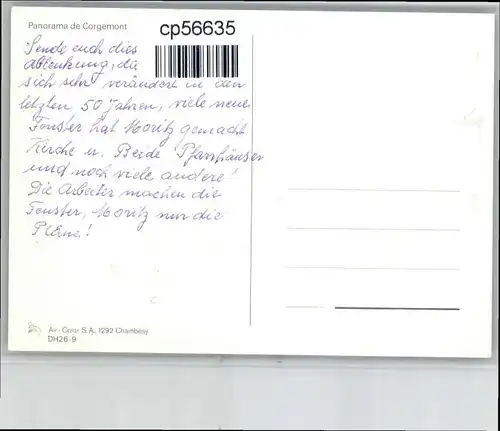 Panorama de Corgemont
cp56635
Sende euch dies
Ablenkung, da
sich sehr verändert in den
letzten 50 Jahren, viele neue
Fenster hat Moritz gemacht
Kirche u. Beide Pfarrhäuser
und noch viele andere!
Die Arbeiter machen die
Fenster, Moritz nur die
Pläne!
Air-Color S.A., 1292 Chambésy
DH26-9